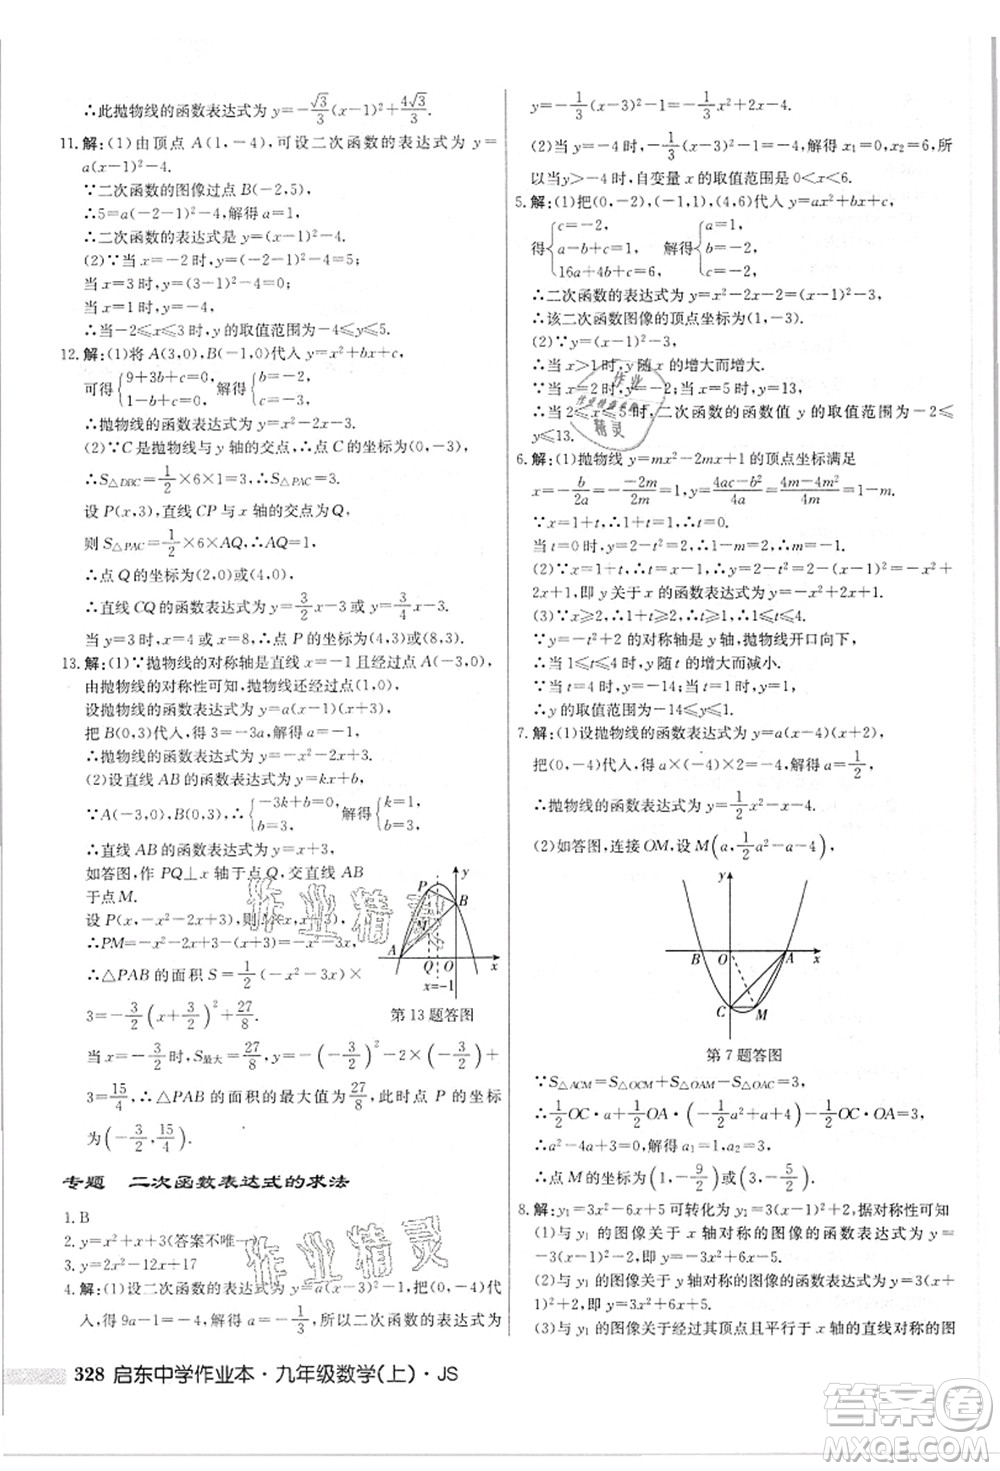 ∴此抛物线的函数表达式为 y=-√3/3(x-1)²+4√3/3.
11.解:(1)由顶点 A(1,-4),可设二次函数的表达式为 y=
a(x-1)²-4.
∵二次函数的图像过点 B(-2,5),
∴5=a(-2-1)²-4,解得 a=1.
∴二次函数的表达式是 y=(x-1)²-4.
(2)∵当 x=-2 时,y=(-2-1)²-4=5;
当 x=3 时,y=(3-1)²-4=0;
当 x=1 时,y=-4,
∴当-2≤x≤3 时,y 的取值范围为-4≤y≤5.
12.解:(1)将 A(3,0),B(-1,0)代入 y=x²+bx+c,
可得{9+3b+c=0, 1-b+c=0, 解得{b=-2, c=-3.
∴抛物线的函数表达式为 y=x²-2x-3.
(2)∵C 为抛物线与 y 轴的交点,∴点 C 的坐标为(0,-3).
∴S△DBC=1/2×6×1=3.∴S△PAC=3.
设 P(x,3),直线 CP 与 x 轴的交点为 Q.
则 S△PAC=1/2×6×AQ,∴AQ=1.
∴点 Q 的坐标为(2,0)或(4,0).
∴直线 CQ 的函数表达式为 y=3/2x-3 或 y=3/4x-3.
当 y=3 时,x=4 或 x=8,∴点 P 的坐标为(4,3)或(8,3).
13.解:(1)∵抛物线的对称轴是直线 x=-1 且经过点 A(-3,0),
由抛物线的对称性可知,抛物线还经过点(1,0).
设抛物线的函数表达式为 y=a(x-1)(x+3).
把 B(0,3)代入,得 3=-3a,解得 a=-1.
∴抛物线的函数表达式为 y=-x²-2x+3.
(2)设直线 AB 的函数表达式为 y=kx+b.
∵A(-3,0),B(0,3),∴{-3k+b=0, b=3. 解得{k=1, b=3.
∴直线 AB 的函数表达式为 y=x+3,
如答图,作 PQ⊥x 轴于点 Q,交直线 AB
于点 M.
设 P(x,-x²-2x+3),则 M(x,x+3).
∴PM=-x²-2x+3-(x+3)=-x²-3x.
∴△PAB 的面积 S=1/2(-x²-3x)×
3=-3/2(x+3/2)²+27/8.
P
y
B
M
A
Q
O
x
x=-1
第 13 题答图
当 x=-3/2 时,S最大=27/8,y=-(-3/2)²-2×(-3/2)+
3=15/4,∴△PAB 的面积的最大值为27/8,此时点 P 的坐标
为(-3/2,15/4).
专题 二次函数表达式的求法
1.B
2.y=x²+2(答案不唯一)
3.y=2x²-12x+17
4.解:(1)设二次函数的表达式为 y=a(x-3)²-1,把(0,-4)代
入,得 9a-1=-4,解得 a=-1/3,所以二次函数的表达式为
y=-1/3(x-3)²-1=-1/3x²+2x-4.
(2)当 y=-4 时,-1/3(x-3)²-1=-4,解得 x₁=0,x₂=6.所
以当 y>-4 时,自变量 x 的取值范围是 0<x<6.
5.解:(1)把(0,-2),(-1,1),(4,6)代入 y=ax²+bx+c,
得{c=-2, a-b+c=1, 16a+4b+c=6. 解得{a=1, b=-2, c=-2.
∴二次函数的表达式为 y=x²-2x-2=(x-1)²-3,
∴该二次函数图像的顶点坐标为(1,-3).
(2)∵y=(x-1)²-3,
∴当 x>1 时,y 随 x 的增大而增大.
∵当 x=2 时,y=-2;当 x=5 时,y=13,
∴当 2≤x≤5 时,二次函数的函数值 y 的取值范围为-2≤
y≤13.
6.解:(1)抛物线 y=mx²-2mx+1 的顶点坐标满足
x=-b/2a=-(-2m)/2m=1,y=(4ac-b²)/4a=(4m-4m²)/4m=1-m.
∵x=1+t,∴1+t=1,解得 t=0.
当 t=0 时,y=2-t²=2,∴1-m=2,解得 m=-1.
(2)∵x=1+t,∴t=x-1.∴y=2-t²=2-(x-1)²=-x²+
2x+1,即 y 关于 x 的函数表达式为 y=-x²+2x+1.
(3)∵x=1+t≥2,∴t≥1.∵t≤4,∴1≤t≤4.
∵y=-t²+2 的对称轴是 y 轴,抛物线开口向下,
∴当 1≤t≤4 时,y 随 t 的增大而减小.
∵当 t=4 时,y=-14;当 t=1 时,y=1,
∴y 的取值范围为-14≤y≤1.
7.解:(1)设抛物线的函数表达式为 y=a(x-4)(x+2),
把(0,-4)代入,得 a×(-4)×2=-4,解得 a=1/2,
∴抛物线的函数表达式为 y=1/2x²-x-4.
(2)如答图,连接 OM,设 M(a,1/2a²-a-4),
y
B
O
A
x
C
M
第 7 题答图
∵S△ACM=S△OCM+S△OAM-S△OAC=3,
∴1/2OC·a+1/2OA·(-1/2a²+a+4)-1/2OC·OA=3,
∴a²-4a+3=0,解得 a₁=1,a₂=3,
∴点 M 的坐标为(1,-9/2)或(3,-5/2).
8.解:y₁=3x²-6x+5 可转化为 y₁=3(x-1)²+2,据对称性可知
(1)与 y₁ 的图像关于 x 轴对称的图像的函数表达式为 y=
-3(x-1)²-2,即 y=-3x²+6x-5.
(2)与 y₁ 的图像关于 y 轴对称的图像的函数表达式为
y=3(x+1)²+2,即 y=3x²+6x+5.
(3)与 y₁ 的图像关于经过其顶点且平行于 x 轴的直线对称的图
328 启东中学作业本·九年级数学(上)·JS
作业精灵
作业精灵
作业
作业检查小助手
精灵
答案圈
MXQE.COM